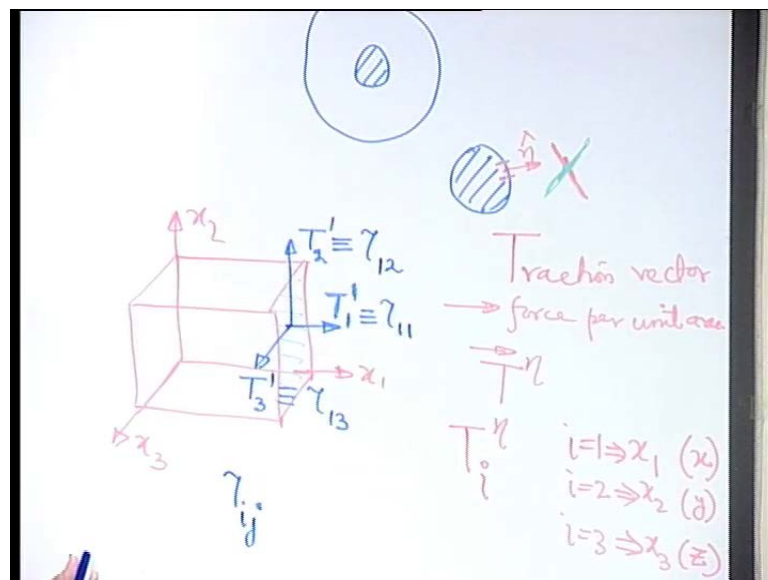 n̂
x₂
T₂¹ ≡ τ₁₂
T₁¹ ≡ τ₁₁
x₁
T₃¹ ≡ τ₁₃
x₃
τᵢⱼ
Traction vector
→ force per unit area
T⃗ⁿ
Tᵢⁿ
i=1⇒x₁ (x)
i=2⇒x₂ (y)
i=3⇒x₃ (z)